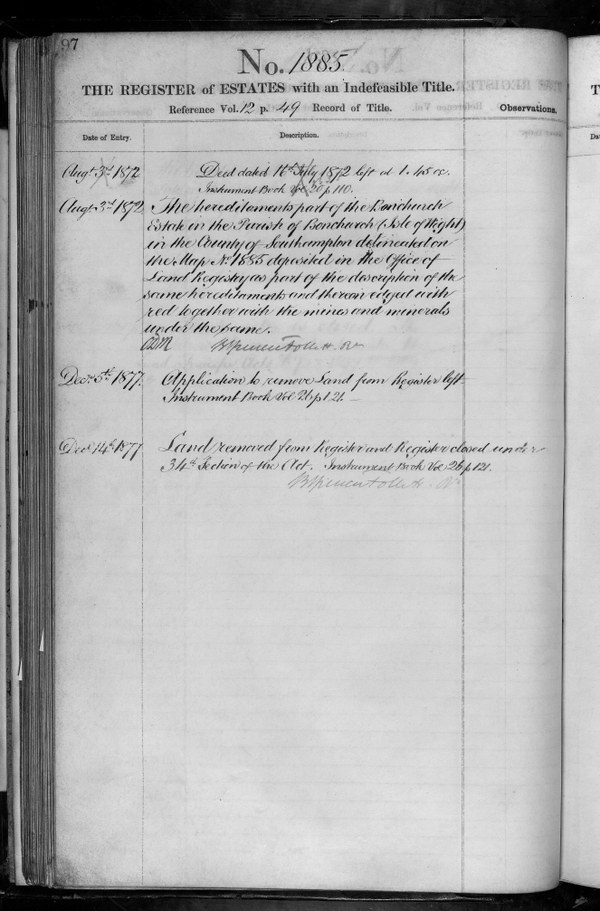 97
No. 1885.
THE REGISTER of ESTATES with an Indefeasible Title.
Reference Vol. 12 p. 49 Record of Title.
Observations.
Date of Entry.
Description.
Augt. 3rd 1872
Deed dated 16th July 1872 left at 1.45 oc.
Instrument Book Vol 20 p 110.
Augt. 3rd 1872
The hereditaments part of the Bonchurch
Estate in the Parish of Bonchurch (Isle of Wight)
in the County of Southampton delineated on
the Map No. 1885 deposited in the Office of
Land Registry as part of the description of the
same hereditaments and thereon edged with
red together with the mines and minerals
under the same.
Decr. 5th 1877.
Application to remove Land from Register left
Instrument Book Vol 26 p 121.
Decr. 14th 1877
Land removed from Register and Register closed under
34th Section of the Act. Instrument Book Vol 26 p 121.
T
Da